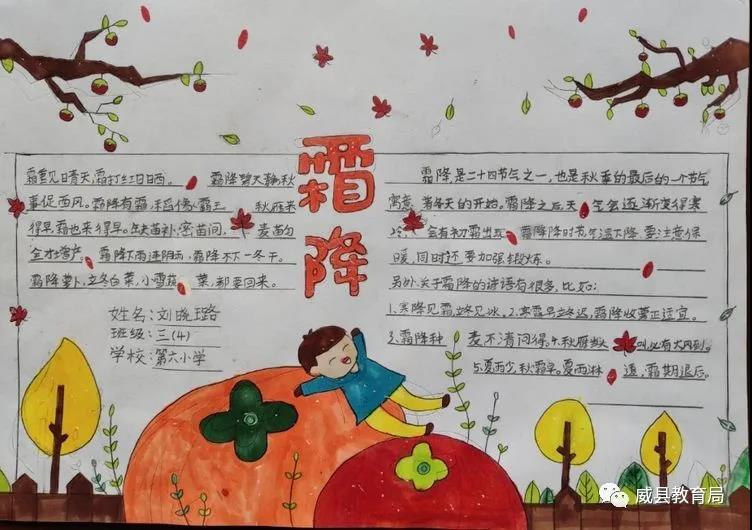 霜降
霜重见日晴天,霜打红日西。 霜降碧天静,秋
事促西风。霜降有霜,稻像霸王。 秋雁来
得早,霜也来得早。 麦苗匀
全才增产。霜降下雨连阴雨,霜降不下一冬干。
霜降萝卜,立冬白菜,小雪菠 菜,都要回来。
姓名:刘晓璐
班级:三(4)
学校:第六小学
霜降是二十四节气之一,也是秋季的最后的一个节气
寓意着冬天的开始。霜降之后天气会逐渐变得寒
冷,会有初霜出现 霜降时节气温下降要注意保
暖,同时还要加强锻炼。
另外关于霜降的谚语有很多,比如:
1.寒降见霜立冬见冰。2.寒露早立冬迟,霜降收薯正适宜。
3.霜降种 麦不清问得.4.秋雁 叫必有大风到。
5.夏雨少,秋霜早。夏雨淋 透,霜期退后。
威县教育局